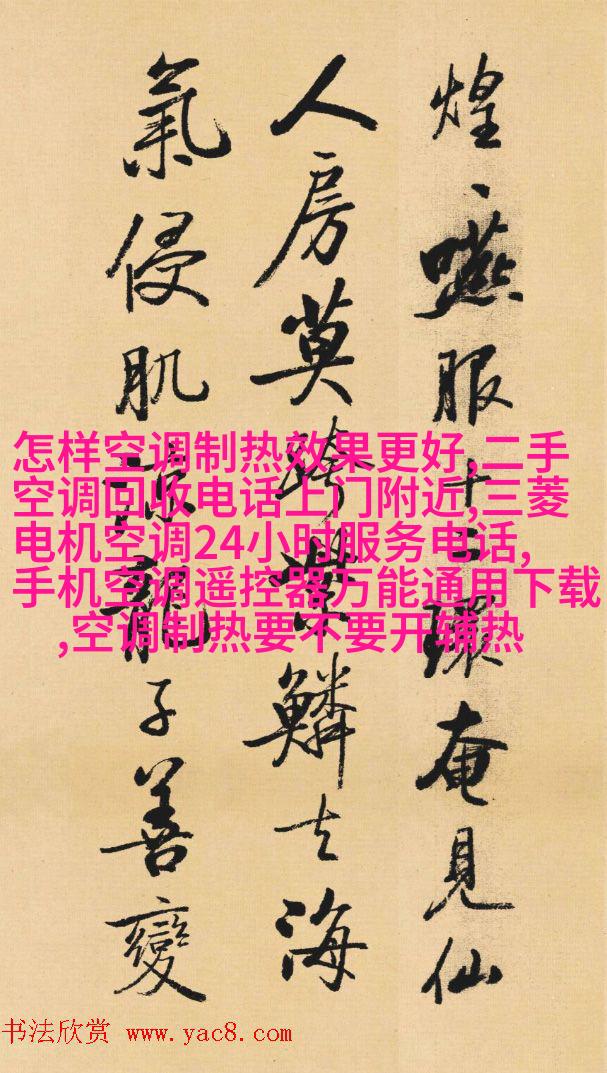 煌、嚥服十二環奄見仙
人房莫跨紫鱗去海
氣侵肌涼龍子善變
怎样空调制热效果更好,二手
空调回收电话上门附近,三菱
电机空调24小时服务电话,
手机空调遥控器万能通用下载
,空调制热要不要开辅热
书法欣赏 www.yac8.com